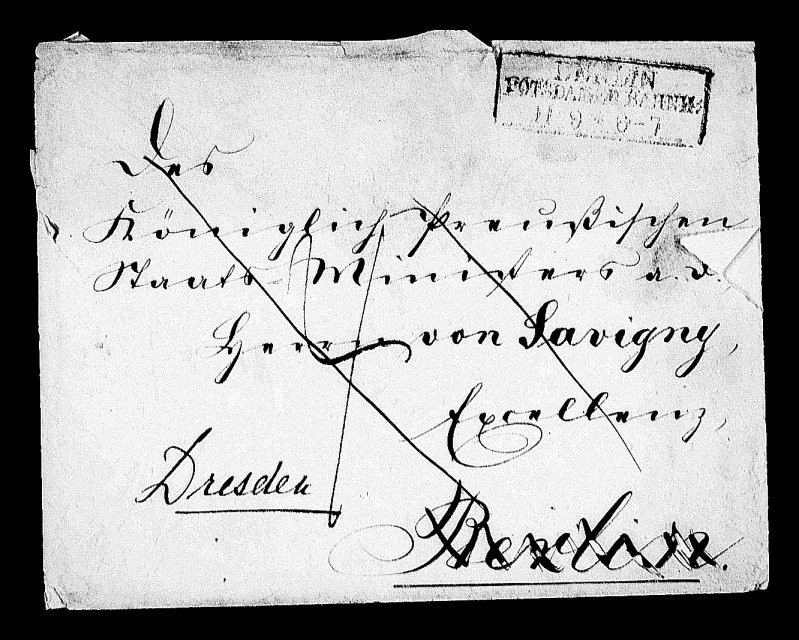 BERLIN
POTSDAMER BAHNH:
11 9 * 6-7
Des
Königlich Preußischen
Staats-Ministers a. D.
Herrn von Savigny,
Excellenz,
Dresden
Berlin.